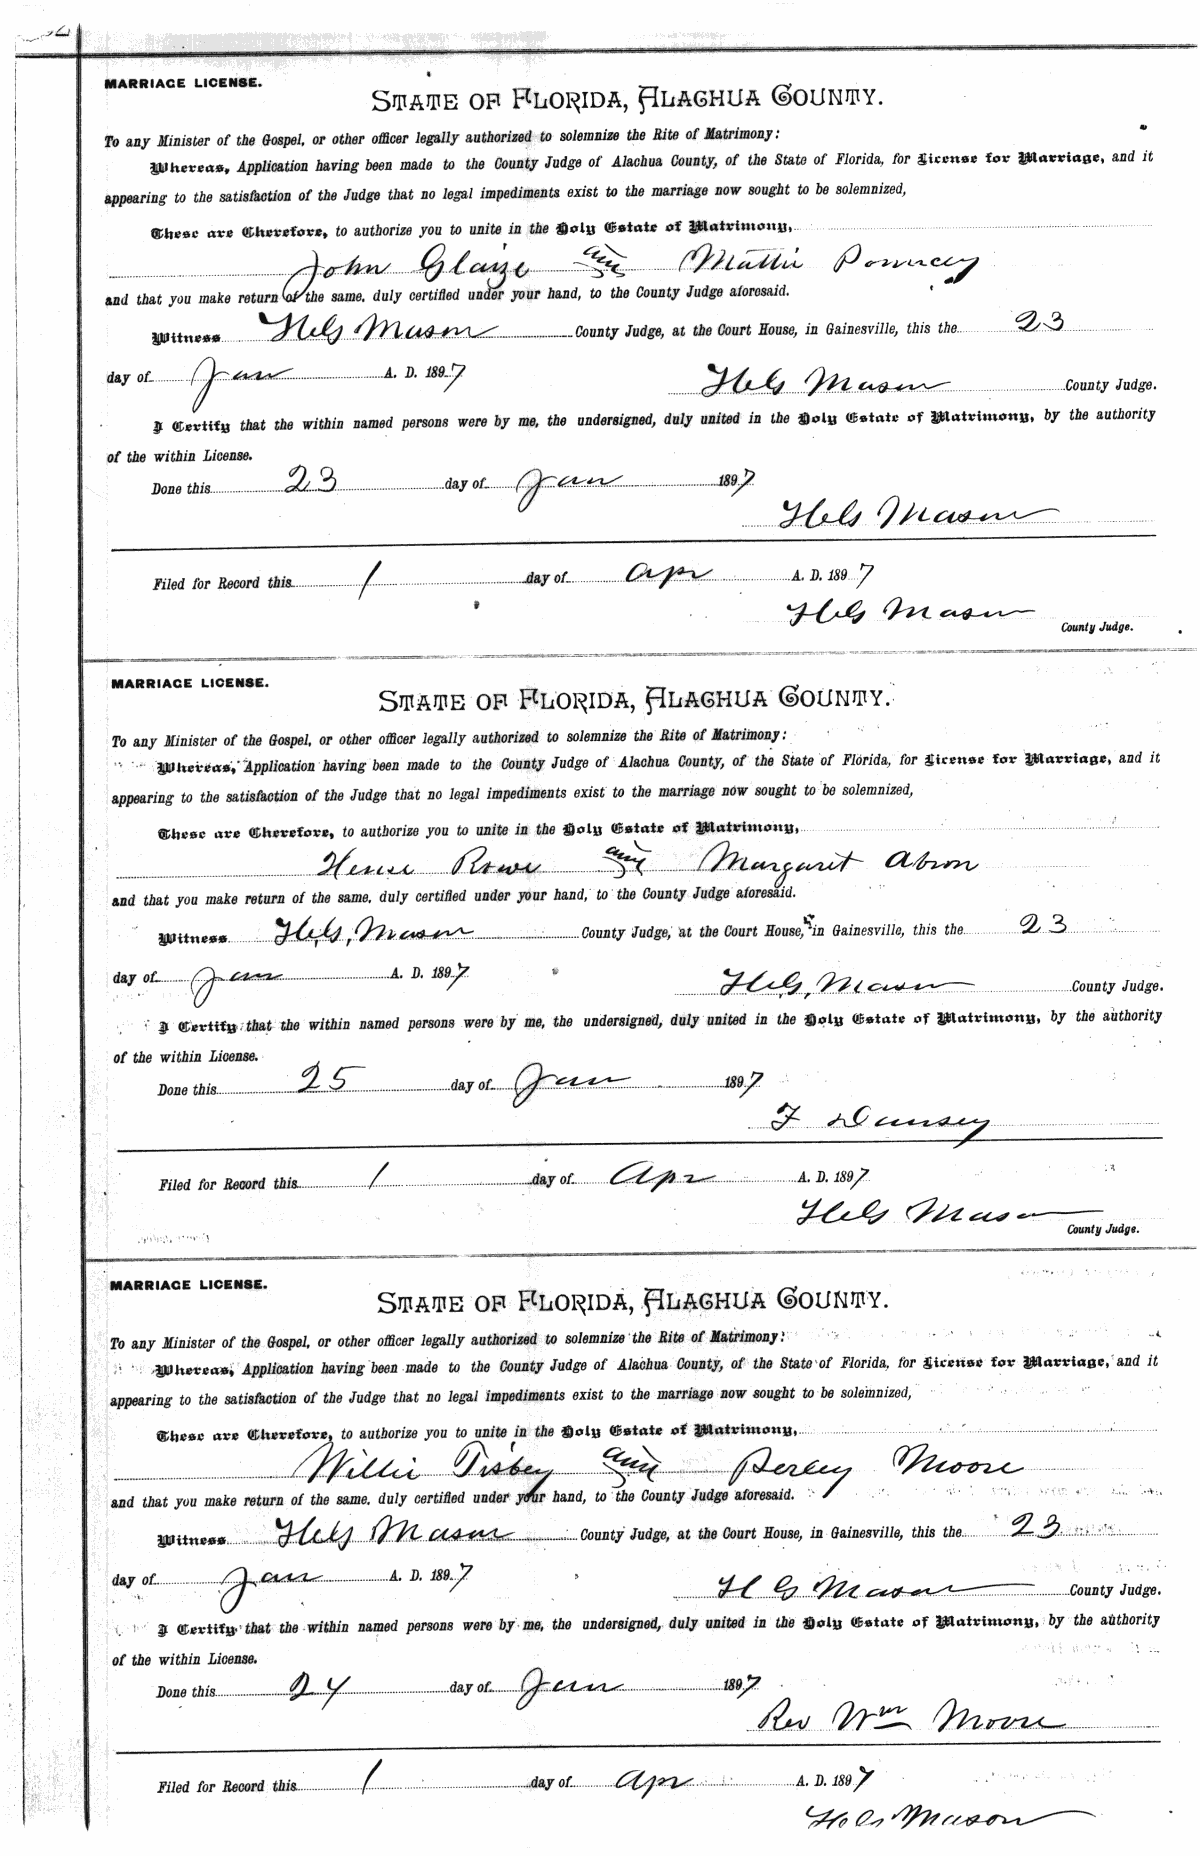 MARRIAGE LICENSE.
STATE OF FLORIDA, ALACHUA COUNTY.
To any Minister of the Gospel, or other officer legally authorized to solemnize the Rite of Matrimony:
Whereas, Application having been made to the County Judge of Alachua County, of the State of Florida, for License for Marriage, and it
appearing to the satisfaction of the Judge that no legal impediments exist to the marriage now sought to be solemnized,
These are Therefore, to authorize you to unite in the Holy Estate of Matrimony,
John Glaize and Mattie
and that you make return of the same, duly certified under your hand, to the County Judge aforesaid.
Witness Mason County Judge, at the Court House, in Gainesville, this the 23
day of Jan A. D. 1897 Mason County Judge.
I Certify that the within named persons were by me, the undersigned, duly united in the Holy Estate of Matrimony, by the authority
of the within License.
Done this 23 day of Jan 1897
Mason
Filed for Record this 1 day of Apr A. D. 1897
Mason
County Judge.
MARRIAGE LICENSE.
STATE OF FLORIDA, ALACHUA COUNTY.
To any Minister of the Gospel, or other officer legally authorized to solemnize the Rite of Matrimony:
Whereas, Application having been made to the County Judge of Alachua County, of the State of Florida, for License for Marriage, and it
appearing to the satisfaction of the Judge that no legal impediments exist to the marriage now sought to be solemnized,
These are Therefore, to authorize you to unite in the Holy Estate of Matrimony,
Rowe and Margaret Abron
and that you make return of the same, duly certified under your hand, to the County Judge aforesaid.
Witness Mason County Judge, at the Court House, in Gainesville, this the 23
day of Jan A. D. 1897 Mason County Judge.
I Certify that the within named persons were by me, the undersigned, duly united in the Holy Estate of Matrimony, by the authority
of the within License.
Done this 25 day of Jan 1897
F Dansey
Filed for Record this 1 day of Apr A. D. 1897
Mason
County Judge.
MARRIAGE LICENSE.
STATE OF FLORIDA, ALACHUA COUNTY.
To any Minister of the Gospel, or other officer legally authorized to solemnize the Rite of Matrimony:
Whereas, Application having been made to the County Judge of Alachua County, of the State of Florida, for License for Marriage, and it
appearing to the satisfaction of the Judge that no legal impediments exist to the marriage now sought to be solemnized,
These are Therefore, to authorize you to unite in the Holy Estate of Matrimony,
Willie Tisbey and Perley Moore
and that you make return of the same, duly certified under your hand, to the County Judge aforesaid.
Witness Mason County Judge, at the Court House, in Gainesville, this the 23
day of Jan A. D. 1897 H G Mason County Judge.
I Certify that the within named persons were by me, the undersigned, duly united in the Holy Estate of Matrimony, by the authority
of the within License.
Done this 24 day of Jan 1897
Rev Wm Moore
Filed for Record this 1 day of Apr A. D. 1897
Mason